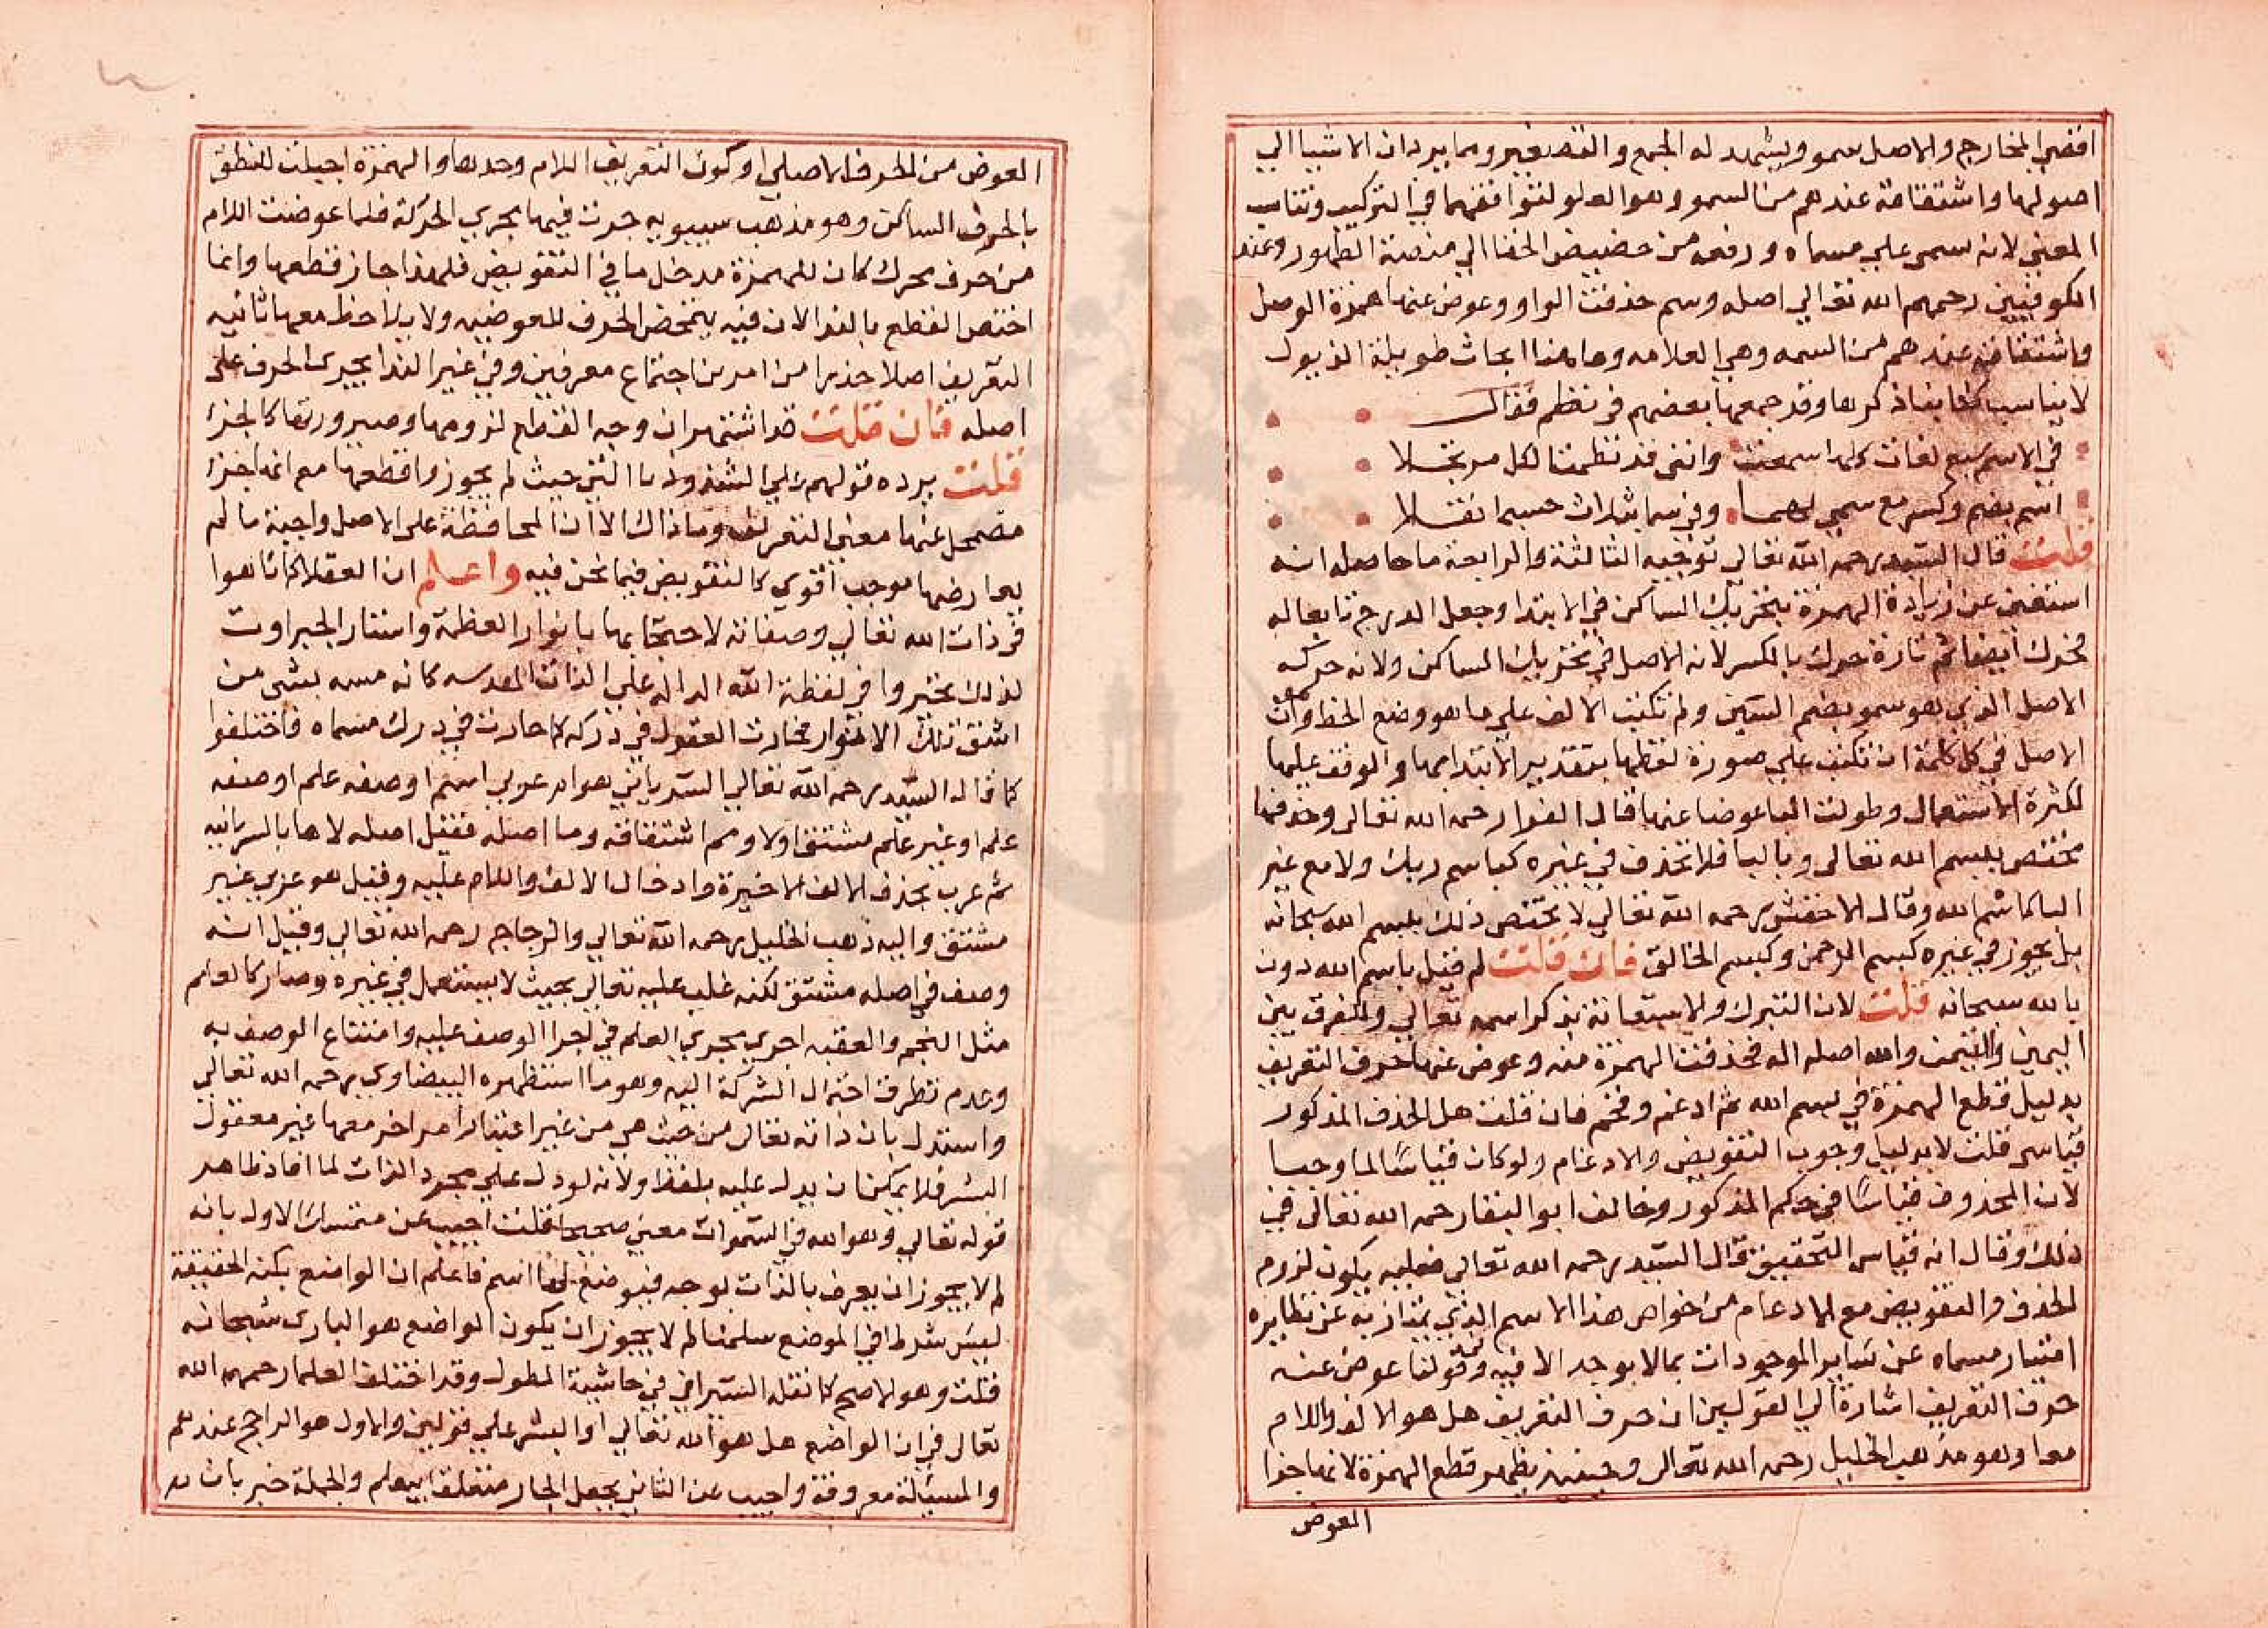 اقصي المخارج والاصل سمو ويشهد له الجمع والتصغير وهما يردان الاشيا الي
اصولها واشتقاقه عندهم من السمو وهو العلو لتوافقهما في التركيب وتناسب
المعني لانه سمي علي مسماه ورفعه من حضيض الخفا الي منصة الظهور وعند
الكوفيين رحمهم الله تعالي اصله وسم حذفت الواو وعوض عنها همزة الوصل
واشتقاقه عندهم من السمه وهي العلامه وهاهنا ابحاث طويلة الذيول
لا يناسب ذكرها وقد جمعها بعضهم في نظم فقال
في الاسم سبع لغات كلها سمعت وانني قد نظمتها لكل مرتجلا
اسم بضم وكسر مع سمي لهما وفي سما ثلاث حسبما نقلا
قلت قال السيد رحمه الله تعالي توجيه الثالثة والرابعة ما حاصله انه
استغني عن زيادة الهمزة بتحريك الساكن في الابتدا وجعل الدرج تابعا له
فحرك ايضا ثم تارة حرك بالكسر لانه الاصل في تحريك الساكن ولانه حركه
الاصل الذي هو سمو بضم السين ولم تكتب الالف علي ما هو وضع الخط وان
الاصل في كل كلمة ان تكتب علي صورة لفظها بتقدير الابتدا بها والوقف عليها
لكثرة الاستعمال وطولت البا عوضا عنها قال الفرا رحمه الله تعالي وحذفها
مختص ببسم الله تعالي وبالبا فلا تحذف في غيره كباسم ربك ولا مع غير
البا كاسم الله وقال الاخفش رحمه الله تعالي لا يختص ذلك ببسم الله سبحانه
بل يجوز في غيره كبسم الرحمن وكبسم الخالق فان قلت لم قيل باسم الله دون
بالله سبحانه قلت لان التبرك والاستعانة بذكر اسمه تعالي والفرق بين
اليمين والتيمن والله اصله اله فحذفت الهمزة منه وعوض عنها حرف التعريف
بدليل قطع الهمزة في بسم الله ثم ادغم وفخم فان قلت هل الحذف المذكور
قياسي قلت لا بدليل وجوب التعويض والادغام ولو كان قياسا لما وجبا
لان المحذوف قياسا في حكم المذكور وخالف ابو البقا رحمه الله تعالي في
ذلك وقال انه قياس التحقيق قال السيد رحمه الله تعالي فعليه يكون لزوم
الحذف والتعويض مع الادغام من خواص هذا الاسم الذي يمتاز به عن نظايره
امتياز مسماه عن ساير الموجودات بما لا يوجد الا فيه وقولنا عوض عنه
حرف التعريف اشارة الي القولين ان حرف التعريف هل هو الالف واللام
معا وهو مذهب الخليل رحمه الله تعالي وحينيذ يظهر قطع الهمزة لانها جزا
العوض
العوض من الحرف الاصلي او كون التعريف اللام وحدها والهمزة اجتلبت للنطق
بالحرف الساكن وهو مذهب سيبويه جرت فيها مجري الحركة فلما عوضت اللام
من حرف محرك كان للهمزة مدخل ما في التعويض فلهذا جاز قطعها وانما
اختص القطع بالندا لان فيه يتمحض الحرف للعوضيه ولا يلاحظ معها ثانيه
التعريف اصلا حذرا من امر من اجتماع معرفين وفي غير الندا يجري الحرف علي
اصله فان قلت قد اشتهر ان وجه القطع لزومها وصيرورتها كالجزا
قلت يرده قولهم علي الشذوذ يا التي حيث لم يجوزوا قطعها مع انه اجزا
مضمحل عنها معني التعريف وما ذاك الا ان المحافظة علي الاصل واجبة ما لم
يعارضها موجب اقوي كالتعويض فيما نحن فيه واعلم ان العقلا كما تاهوا
في ذات الله تعالي وصفاته لاحتجابها بانوار العظمة واستار الجبروت
لذلك تحيروا في لفظة الله الدالة علي الذات المقدسه كانه مسه بشي من
اشعة تلك الانوار فحارت العقول في ذركه كما حارت في درك مسماه فاختلفوا
كما قال السيد رحمه الله تعالي السرياني هو ام عربي اسم او صفه علم او صفه
علم او غير علم مشتق اولا ومم اشتقاقه وما اصله فقيل اصله لاها بالسريانيه
ثم عرب بحذف الالف الاخيرة وادخال الالف واللام عليه وقيل هو عربي غير
مشتق واليه ذهب الخليل رحمه الله تعالي والزجاج رحمه الله تعالي وقيل انه
وصف في اصله مشتق لكنه غلب عليه تعالي بحيث لا يستعمل في غيره وصار كالعلم
مثل النجم والعقبه اجري مجري العلم في اجرا الوصف عليه وامتناع الوصف به
وعدم تطرق احتمال الشركة اليه وهو ما استظهره البيضاوي رحمه الله تعالي
واستدل بان ذاته تعالي من حيث هي من غير اعتبار امر اخر معها غير معقول
البشر فلا يمكن ان يدل عليه بلفظ ولانه لو دل علي مجرد الذات لما افاد ظاهر
قوله تعالي وهو الله في السموات معني صحيحا قلت اجيب عن متمسك الاول بانه
لم لا يجوز ان يعرف بالذات بوجه فيوضع لها اسم فاعلم ان الواضع بكنه الحقيقة
ليس شرطا في الموضع سلمنا لم لا يجوز ان يكون الواضع هو الباري سبحانه
قلت وهو الاصح كما نقله السيرافي في حاشية المطول وقد اختلف العلما رحمهم الله
تعالي في ان الواضع هل هو الله تعالي او البشر علي قولين والاول هو الراجح عندهم
والمسيالة معروفة واجيب عن الثاني بجعل الجار متعلقا بيعلم والجملة خبر ثان